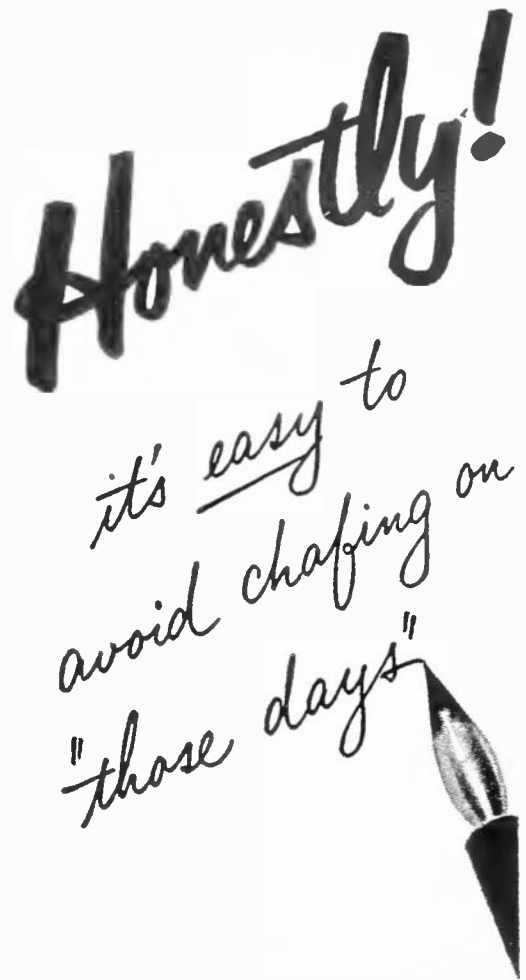 Honestly!
it's easy to
avoid chafing on
"those days"